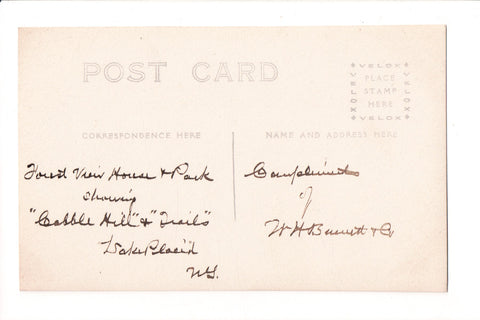 POST CARD
VELOX
VELOX
PLACE
STAMP
HERE
VELOX
VELOX
CORRESPONDENCE HERE
NAME AND ADDRESS HERE
Forest View House & Park
showing
"Cobble Hill" & "Trails"
Lake Placid
N.Y.
Compliments
of
W H Burnett & Co